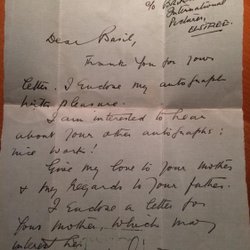 c/o
International
Pictures,
ELSTREE.
Dear Basil,
Thank you for your
letter. I enclose my autograph
with pleasure.
I am interested to hear
about your other autographs:
nice work!
Give my love to your Mother
& my regards to your father.
I enclose a letter for
your mother, which may
interest her.